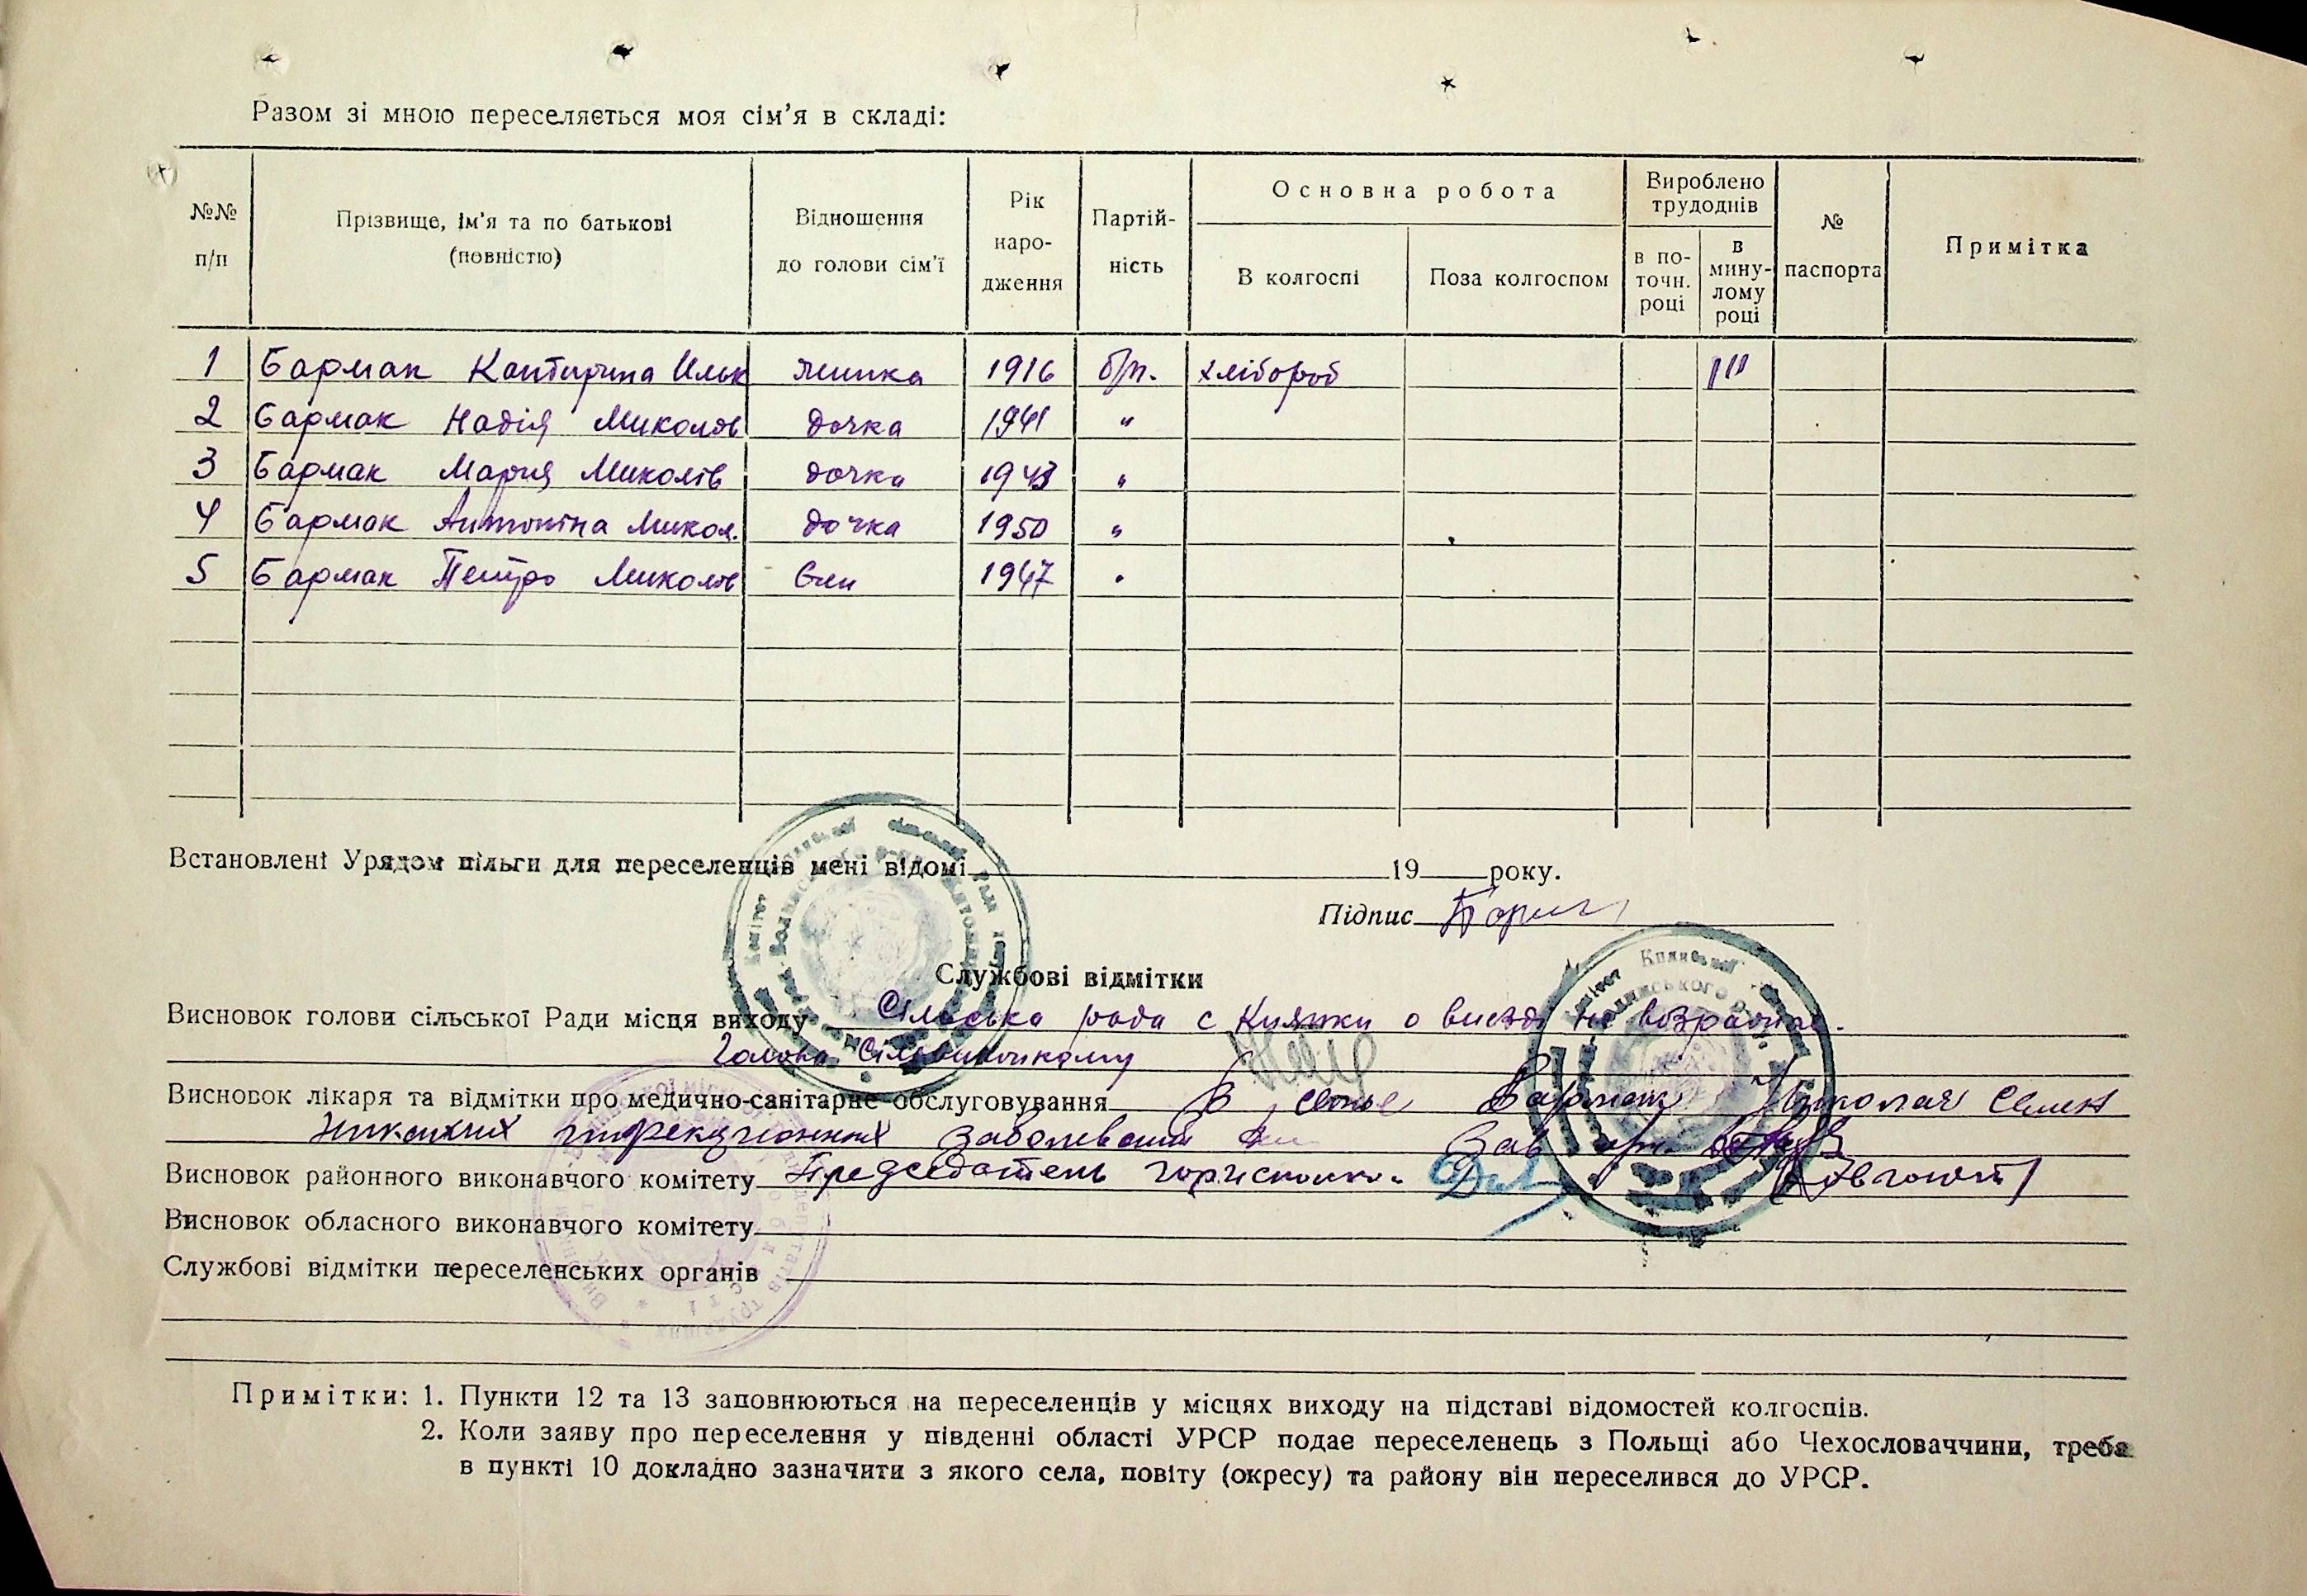 Разом зі мною переселяється моя сім'я в складі:
№№ п/п
Прізвище, ім'я та по батькові (повністю)
Відношення до голови сім'ї
Рік народження
Партійність
Основна робота
В колгоспі
Поза колгоспом
Вироблено трудоднів
в поточн. році
в минулому році
№ паспорта
Примітка
1 Бармак Катирина Ильк жинка 1916 б/п. хлібороб
2 Бармак Надія Миколов дочка 1941 "
3 Бармак Мария Миколів дочка 1943 "
4 Бармак Антоніна Микол. дочка 1950 "
5 Бармак Петро Миколов Син 1947 "
Встановлені Урядом пільги для переселенців мені відомі 19 року.
Підпис
Службові відмітки
Висновок голови сільської Ради місця виходу Сільська рада с Княжки о виезді не возражає.
Голова Сільвиконкому
Висновок лікаря та відмітки про медично-санітарне обслуговування В семье Бармак Николая Семен
Никаких инфекционных заболеваний Зав
Висновок районного виконавчого комітету Председатель горисполко.
Висновок обласного виконавчого комітету
Службові відмітки переселенських органів
Примітки: 1. Пункти 12 та 13 заповнюються на переселенців у місцях виходу на підставі відомостей колгоспів.
2. Коли заяву про переселення у південні області УРСР подає переселенець з Польщі або Чехословаччини, треба
в пункті 10 докладно зазначити з якого села, повіту (окресу) та району він переселився до УРСР.